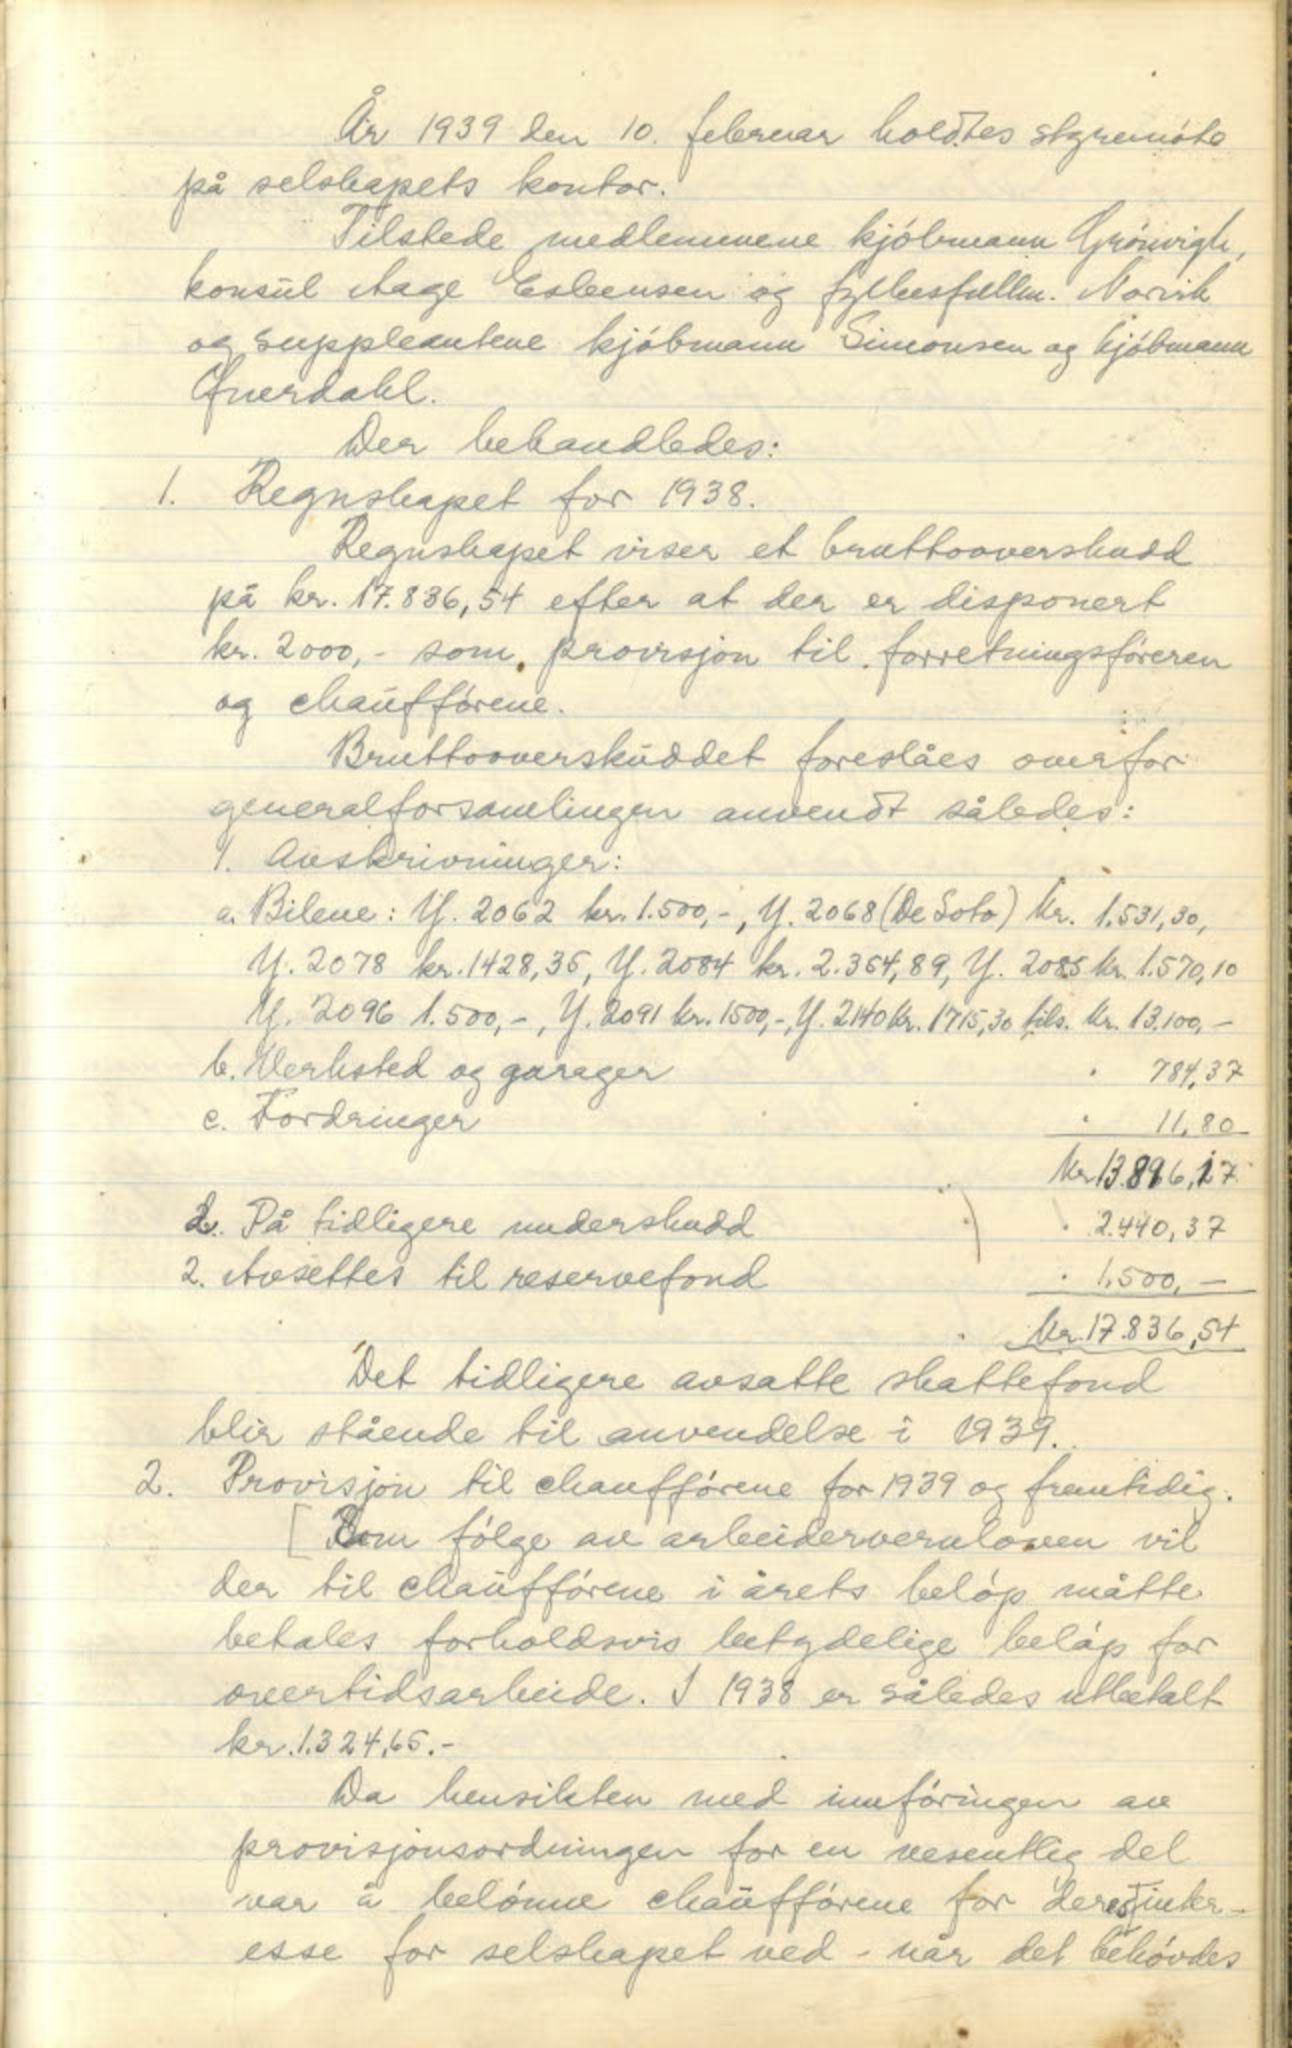 År 1939 den 10. februar holdtes styremöte
på selskapets kontor.
Tilstede medlemmene kjöbmann Grönvigh,
konsul Aage Esbensen og fylkesfullm. Norvik
og suppleantene kjöbmann Simonsen og kjöbmann
Querdahl.
Der behandledes:
1. Regnskapet for 1938.
Regnskapet viser et bruttooverskudd
på kr. 17.836,54 efter at der er disponert
kr. 2000,- som provisjon til forretningsföreren
og chaufförene.
Bruttooverskuddet foreslåes overfor
generalforsamlingen anvendt således:
1. Avskrivninger:
a. Bilene: Y. 2062 kr. 1.500,-, Y. 2068 (De Soto) Kr. 1.531,30,
Y. 2078 kr. 1428,35, Y. 2084 kr. 2.354,89, Y. 2085 kr. 1.570,10
Y. 2096 1.500,-, Y. 2091 kr. 1500,-, Y. 2140 kr. 1715,30 tils. kr. 13.100,-
b. Verksted og garager " 784,37
c. Fordringer " 11,80
Kr 13.896,17
2. På tidligere underskudd " 2.440,37
2. Avsettes til reservefond " 1.500,-
Kr. 17.836,54
Det tidligere avsatte skattefond
blir stående til anvendelse i 1939.
2. Provisjon til chaufförene for 1939 og fremtidig.
[Som fölge av arbeidervernloven vil
der til chaufförene i årets belöp måtte
betales forholdsvis betydelige belöp for
overtidsarbeide. I 1938 er således utbetalt
kr. 1.324,65.-
Da hensikten med innföringen av
provisjonsordningen for en vesentlig del
var å belönne chaufförene for deres inter-
esse for selskapet ved - når det behövdes